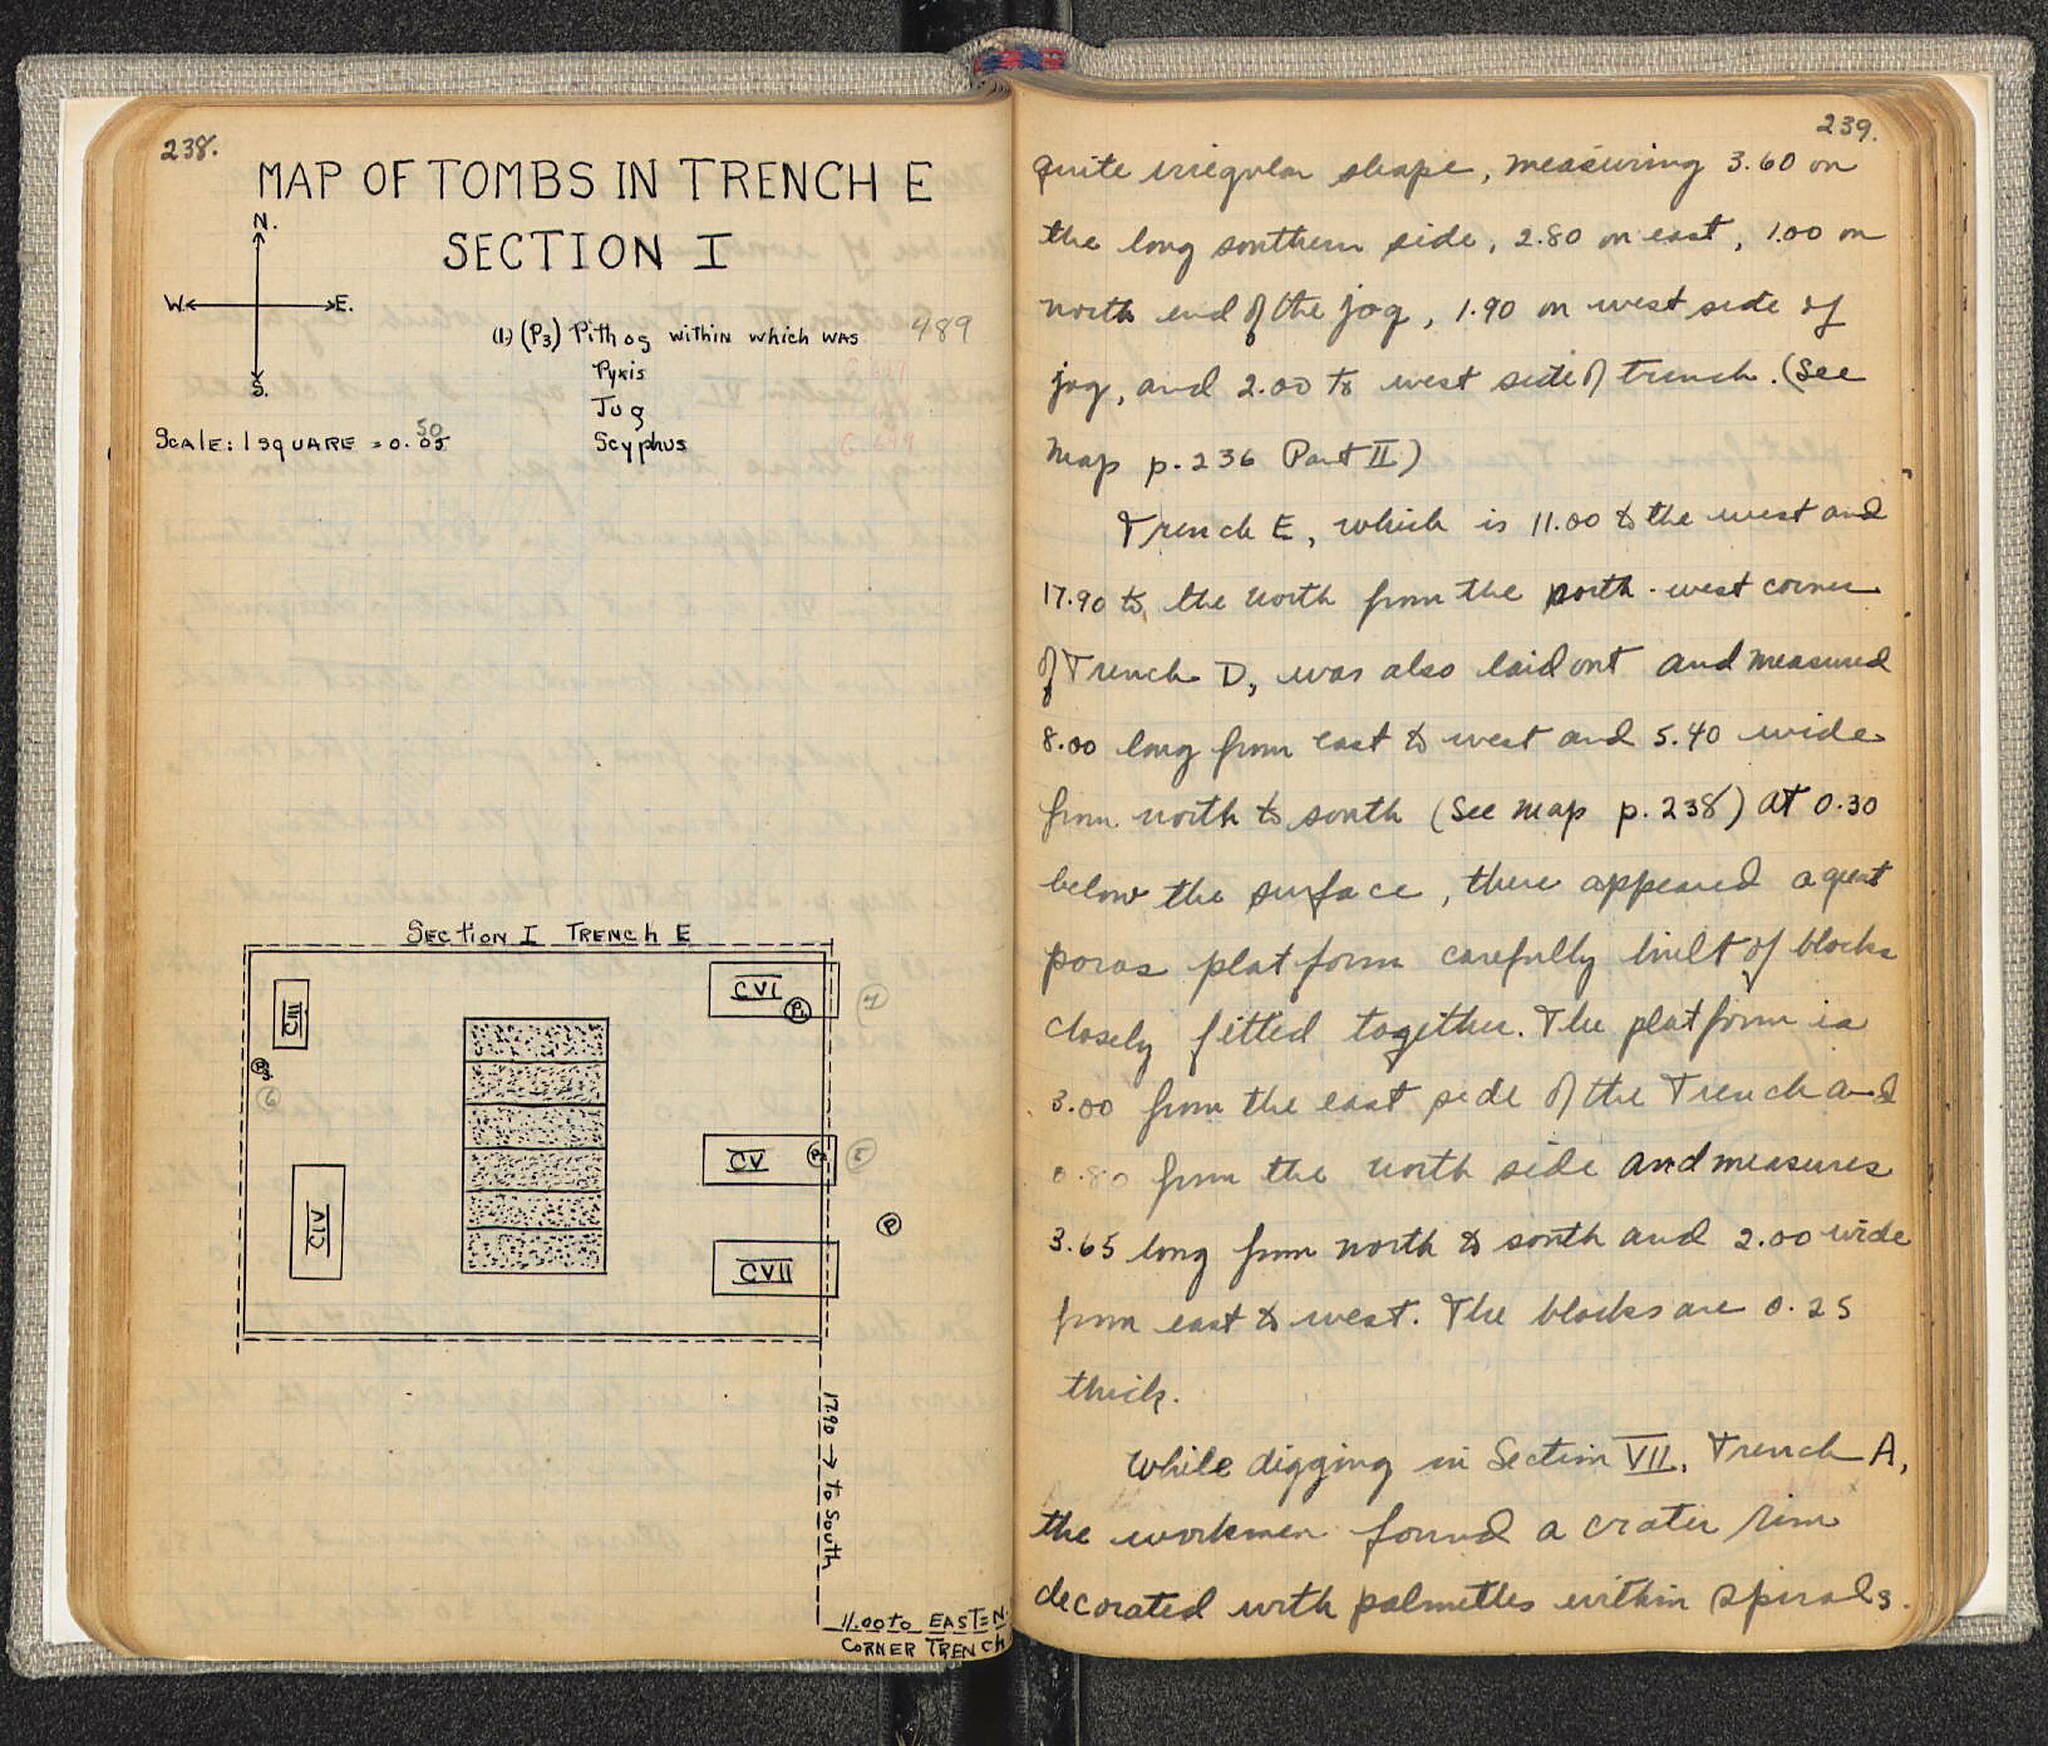 238.
MAP OF TOMBS IN TRENCH E
SECTION I
N.
W. E.
S.
(1.) (P3) Pithos within which was 489
Pyxis
Jug
Scyphus
Scale: 1 square = 0.05
50
Section I Trench E
CIII
CVI
P1
4
P3.
6
CV
P2
5
CIV
P
CVII
17.90 → to South
11.00 to EAST = N.
CORNER TRENCH
239.
quite irregular shape, measuring 3.60 on
the long southern side, 2.80 on east, 1.00 on
north end of the jog, 1.90 on west side of
jog, and 2.00 to west side of trench. (See
Map p. 236 Part II)
Trench E, which is 11.00 to the west and
17.90 to the north from the north-west corner
of Trench D, was also laid out and measured
8.00 long from east to west and 5.40 wide
from north to south (See Map p. 238) At 0.30
below the surface, there appeared a great
poros platform carefully built of blocks
closely fitted together. The platform is
3.00 from the east side of the Trench and
0.80 from the north side and measures
3.65 long from north to south and 2.00 wide
from east to west. The blocks are 0.25
thick.
While digging in Section VII, Trench A,
the workmen found a crater rim
decorated with palmettes within spirals.